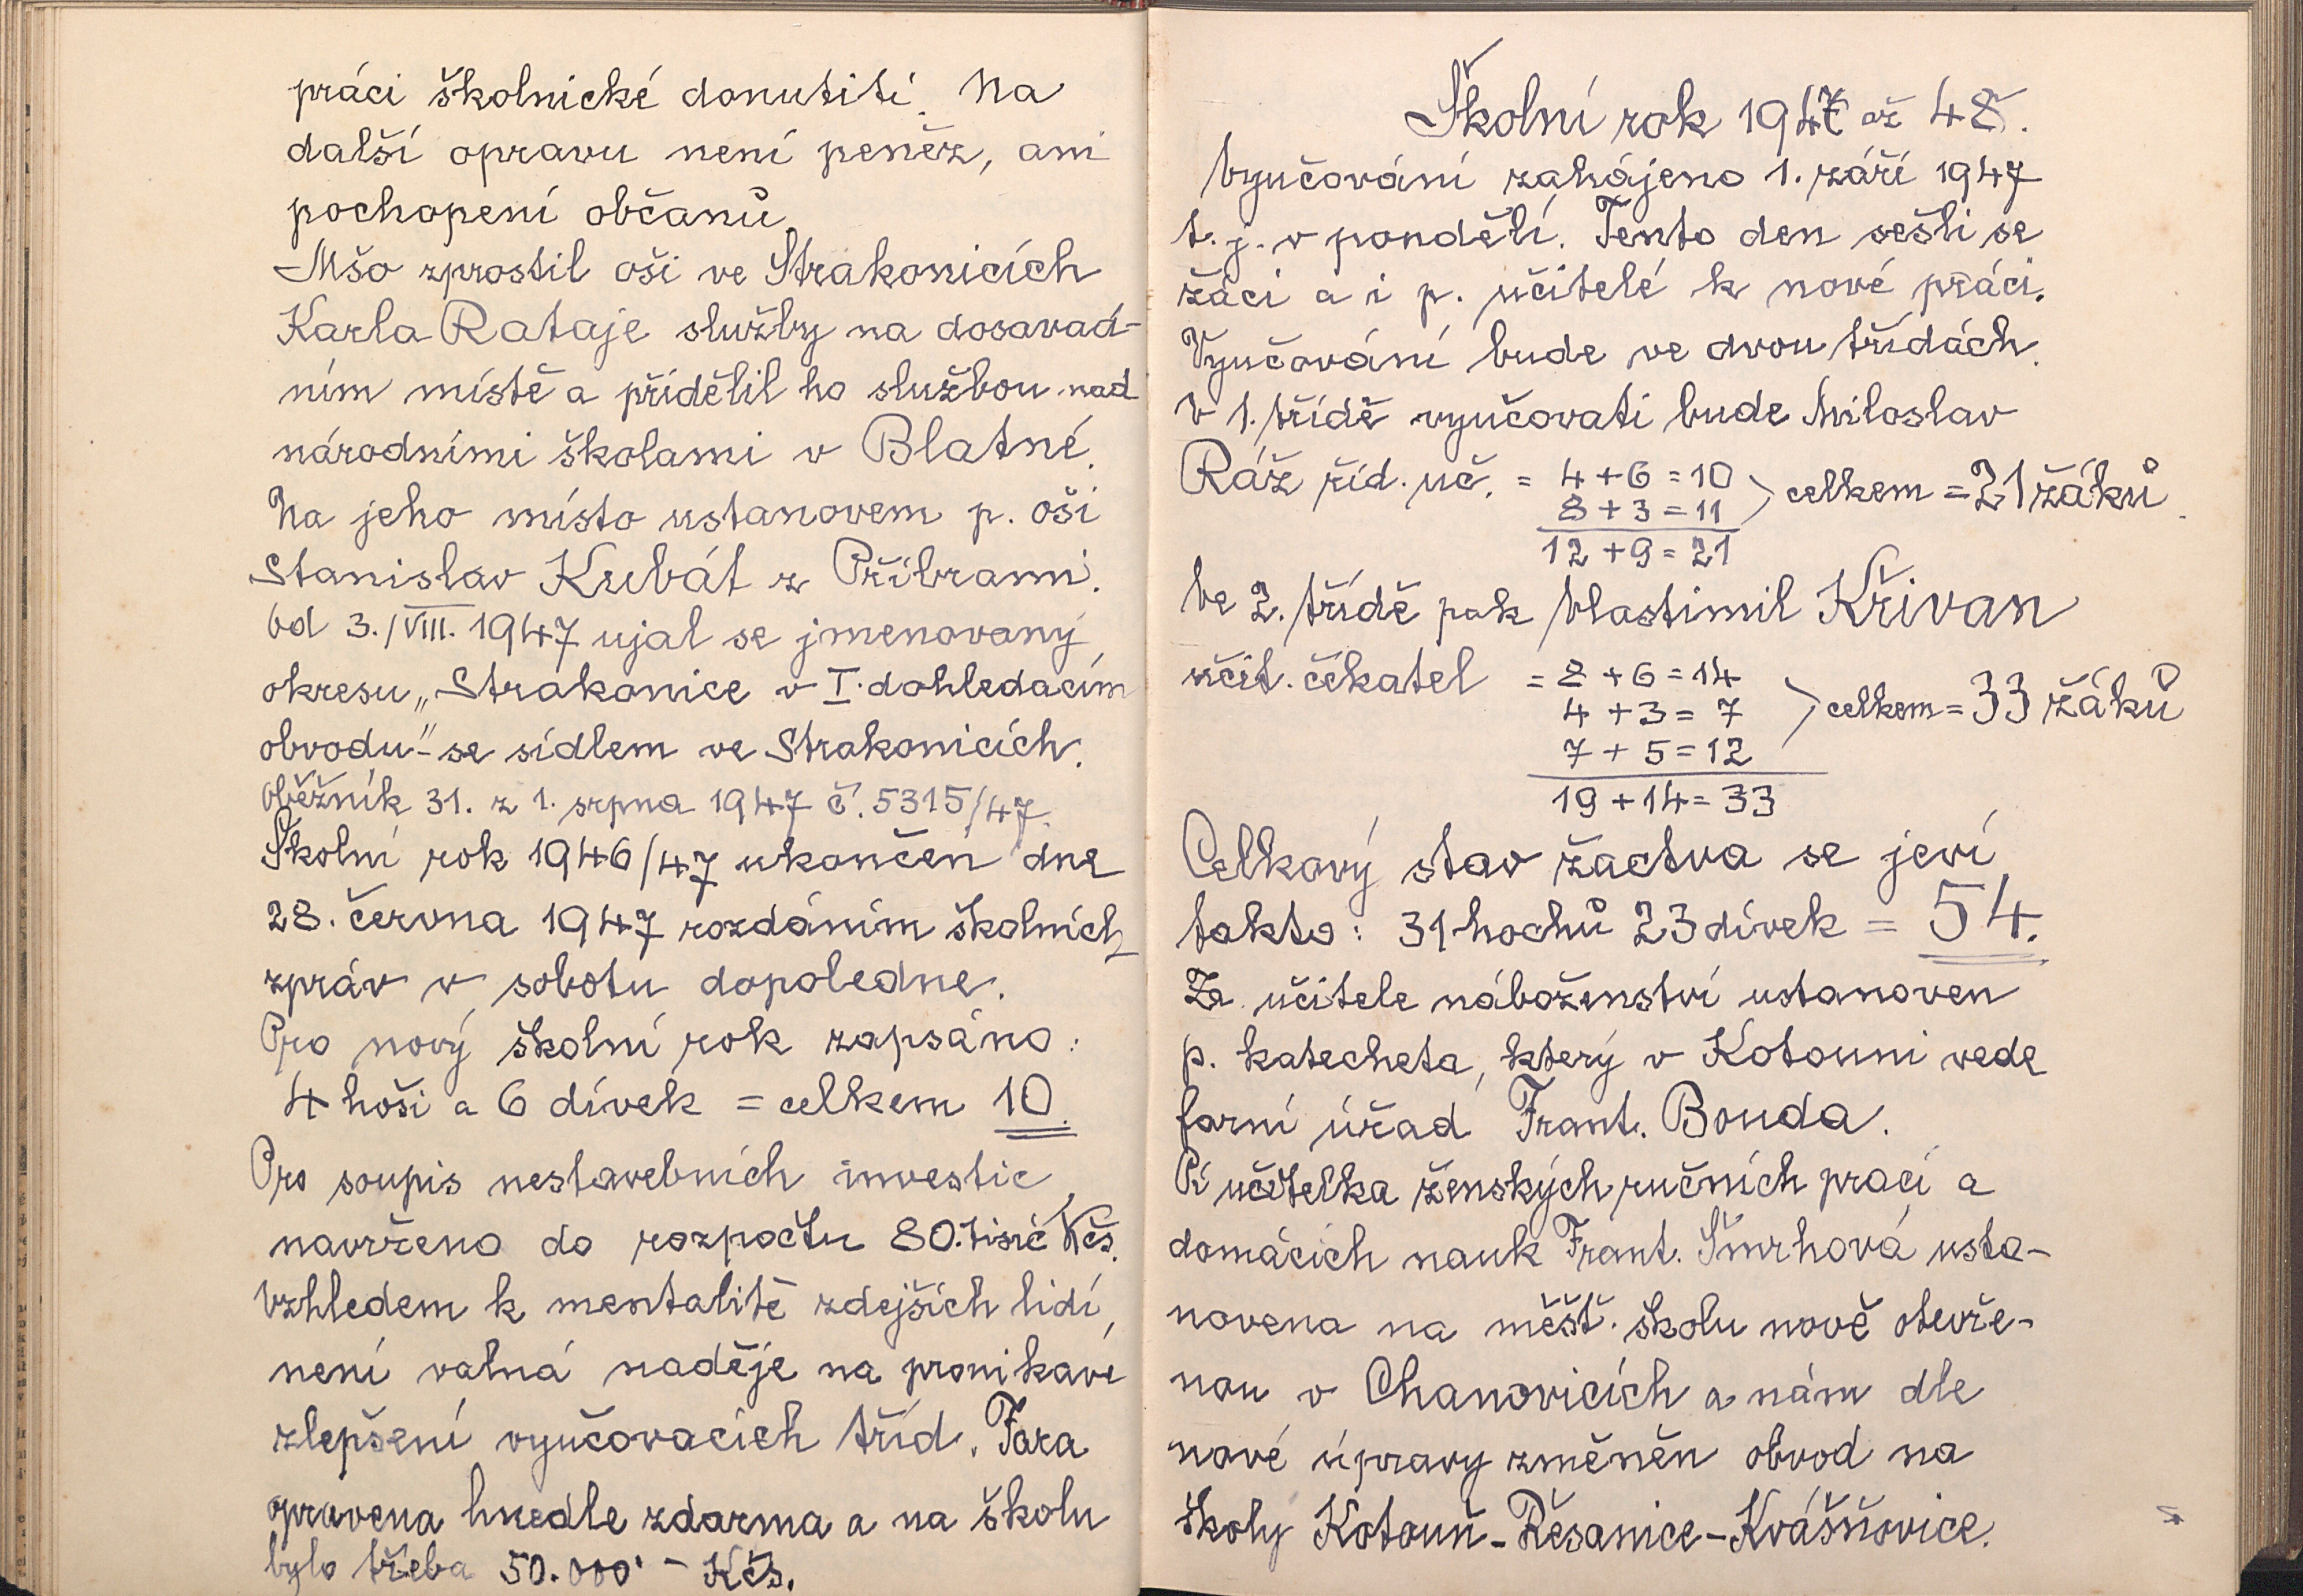 práci školnické donutiti. Na
další opravu není peněz, ani
pochopení občanů.
Mšo zprostil oši ve Strakonicích
Karla Rataje služby na dosavad-
ním místě a přidělil ho službou nad
národními školami v Blatné.
Na jeho místo ustanovem p. oši
Stanislav Kubát z Příbrami.
Od 3./VIII. 1947 ujal se jmenovaný
okresu „Strakonice v I. dohledacím
obvodu"- se sídlem ve Strakonicích.
Oběžník 31. z 1. srpna 1947 č. 5315/47.
Školní rok 1946/47 ukončen dne
28. června 1947 rozdáním školních
zpráv v sobotu dopoledne.
Pro nový školní rok zapsáno:
4 hoši a 6 dívek = celkem 10.
Pro soupis nestavebních investic
navrženo do rozpočtu 80.tisíc Kčs.
Vzhledem k mentalitě zdejších lidí,
není valná naděje na pronikavé
zlepšení vyučovacích tříd. Fara
opravena hnedle zdarma a na školu
bylo třeba 50.000·- Kčs.
Školní rok 1947 až 48.
Vyučování zahájeno 1. září 1947
t. j. v pondělí. Tento den sešli se
žáci a i p. učitelé k nové práci.
Vyučování bude ve dvou třídách.
V 1. třídě vyučovati bude Miloslav
Ráž říd. uč. = 4 + 6 = 10
8 + 3 = 11 celkem = 21 žáků.
12 + 9 = 21
Ve 2. třídě pak Vlastimil Křivan
učit. čekatel = 8 + 6 = 14
4 + 3 = 7 celkem = 33 žáků
7 + 5 = 12
19 + 14 = 33
Celkový stav žactva se jeví
takto: 31 hochů 23 dívek = 54.
Za učitele náboženství ustanoven
p. katecheta, který v Kotouni vede
farní úřad Frant. Bouda.
Pí učitelka ženských ručních prací a
domácích nauk Frant. Šmrhová usta-
novena na měšť. školu nově otevře-
nou v Chanovicích a nám dle
nové úpravy změněn obvod na
školy Kotouň - Řesanice - Kvášňovice.